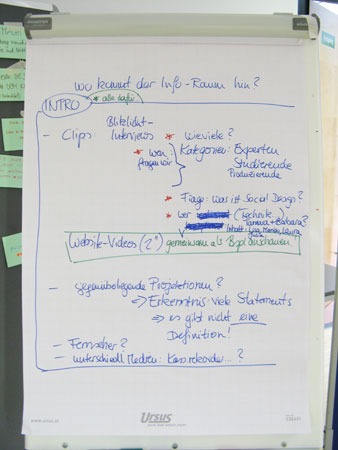 wo kommt der Info-Raum hin?
INTRO
* alle dafür
- Clips: Blitzlicht-
Interviews
* wieviele?
* wen fragen wir
Kategorien: Experten
Studierende
Produzierende
* Frage: Was ist Social Design?
* wer (Technik:
Barbara?
Inhalt:
Website-Videos (2") gemeinsam als Bspl anschauen!
- gegenüberliegende Projektionen?
⇒ Erkenntnis: viele Statements
⇒ es gibt nicht eine
Definition!
- Fernseher?
- unterschiedl Medien: Kassrekorder...?
www.ursus.at
Ursus